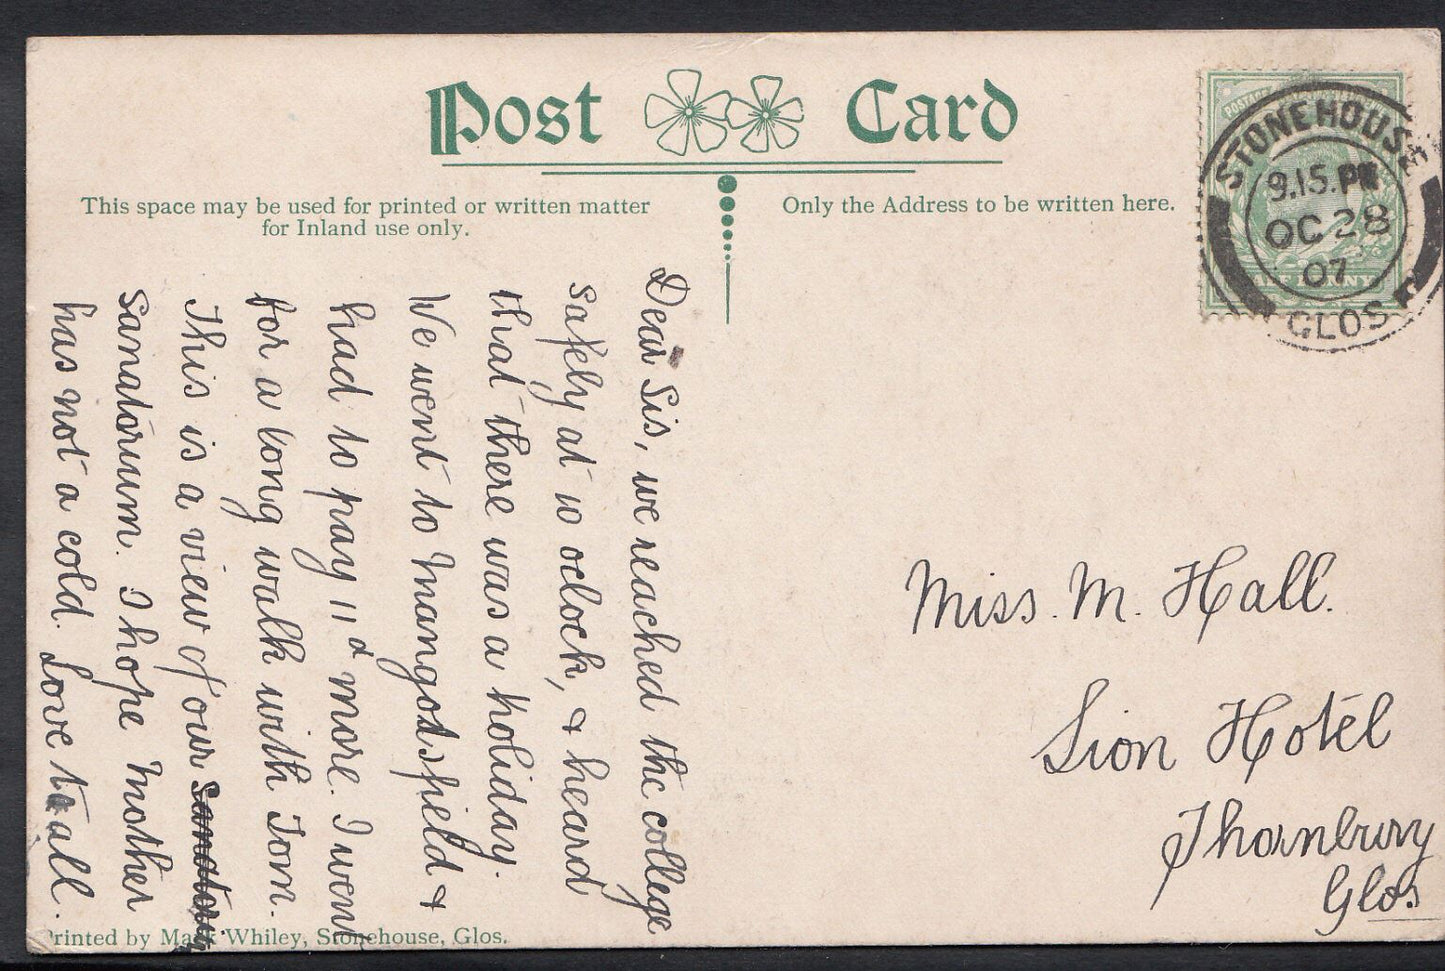 Post Card
This space may be used for printed or written matter
for Inland use only.
Only the Address to be written here.
STONEHOUSE
9.15.PM
OC 28
07
GLOS
Dear Sis, we reached the college
safely at 10 oclock, & heard
that there was a holiday.
We went to Mangotsfield &
had to pay 11d more. I went
for a long walk with Tom.
This is a view of our
Sanatorium. I hope Mother
has not a cold. Love to all.
Miss. M. Hall.
Lion Hotel
Thornbury
Glos.
Printed by Mark Whiley, Stonehouse, Glos.